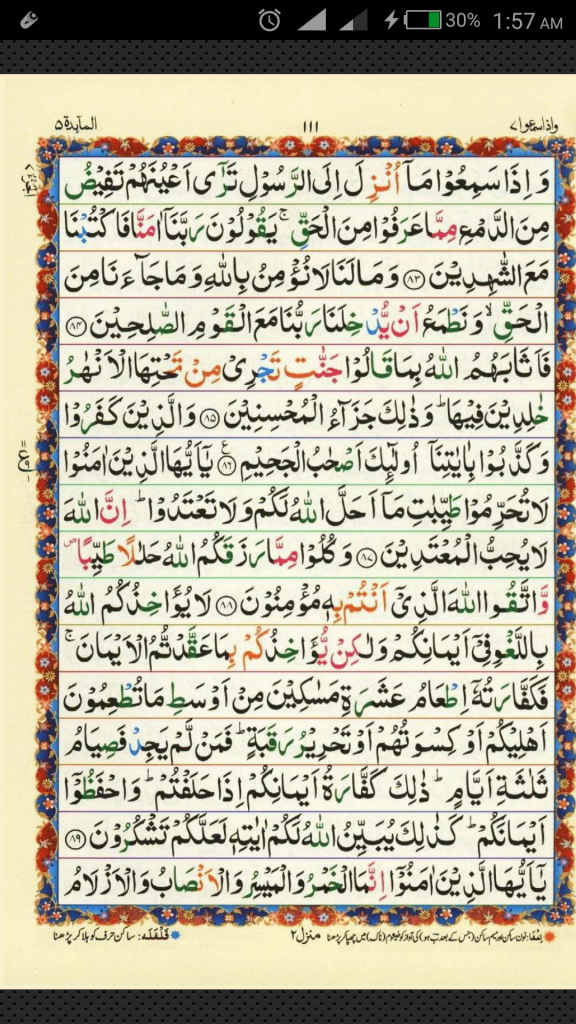 30% 1:57 AM
واذاسمعوا ٧ ١١١ المآىدة ٥
وَ اِذَا سَمِعُوْا مَاۤ اُنْزِلَ اِلَى الرَّسُوْلِ تَرٰۤى اَعْيُنَهُمْ تَفِيْضُ
مِنَ الدَّمْعِ مِمَّا عَرَفُوْا مِنَ الْحَقِّ ۚ يَقُوْلُوْنَ رَبَّنَاۤ اٰمَنَّا فَاكْتُبْنَا
مَعَ الشّٰهِدِيْنَ ۝٨٣ وَ مَا لَنَا لَا نُؤْمِنُ بِاللّٰهِ وَ مَا جَآءَ نَا مِنَ
الْحَقِّ ۙ وَ نَطْمَعُ اَنْ يُّدْخِلَنَا رَبُّنَا مَعَ الْقَوْمِ الصّٰلِحِيْنَ ۝٨٤
فَاَثَابَهُمُ اللّٰهُ بِمَا قَالُوْا جَنّٰتٍ تَجْرِىْ مِنْ تَحْتِهَا الْاَنْهٰرُ
خٰلِدِيْنَ فِيْهَا ؕ وَ ذٰلِكَ جَزَآءُ الْمُحْسِنِيْنَ ۝٨٥ وَالَّذِيْنَ كَفَرُوْا
وَ كَذَّبُوْا بِاٰيٰتِنَاۤ اُولٰٓىِٕكَ اَصْحٰبُ الْجَحِيْمِ ۝٨٦ يٰۤاَيُّهَا الَّذِيْنَ اٰمَنُوْا
لَا تُحَرِّمُوْا طَيِّبٰتِ مَاۤ اَحَلَّ اللّٰهُ لَكُمْ وَ لَا تَعْتَدُوْا ؕ اِنَّ اللّٰهَ
لَا يُحِبُّ الْمُعْتَدِيْنَ ۝٨٧ وَ كُلُوْا مِمَّا رَزَقَكُمُ اللّٰهُ حَلٰلًا طَيِّبًا ۪
وَّ اتَّقُوا اللّٰهَ الَّذِىْۤ اَنْتُمْ بِهٖ مُؤْمِنُوْنَ ۝٨٨ لَا يُؤَاخِذُكُمُ اللّٰهُ
بِاللَّغْوِ فِىْۤ اَيْمَانِكُمْ وَ لٰكِنْ يُّؤَاخِذُكُمْ بِمَا عَقَّدْتُّمُ الْاَيْمَانَ ۚ
فَكَفَّارَتُهٗۤ اِطْعَامُ عَشَرَةِ مَسٰكِيْنَ مِنْ اَوْسَطِ مَا تُطْعِمُوْنَ
اَهْلِيْكُمْ اَوْ كِسْوَتُهُمْ اَوْ تَحْرِيْرُ رَقَبَةٍ ؕ فَمَنْ لَّمْ يَجِدْ فَصِيَامُ
ثَلٰثَةِ اَيَّامٍ ؕ ذٰلِكَ كَفَّارَةُ اَيْمَانِكُمْ اِذَا حَلَفْتُمْ ؕ وَ احْفَظُوْۤا
اَيْمَانَكُمْ ؕ كَذٰلِكَ يُبَيِّنُ اللّٰهُ لَكُمْ اٰيٰتِهٖ لَعَلَّكُمْ تَشْكُرُوْنَ ۝٨٩
يٰۤاَيُّهَا الَّذِيْنَ اٰمَنُوْۤا اِنَّمَا الْخَمْرُ وَ الْمَيْسِرُ وَ الْاَنْصَابُ وَ الْاَزْلَامُ
منزل ٢
قلقلہ: ساکن حرف کو ہلا کر پڑھنا